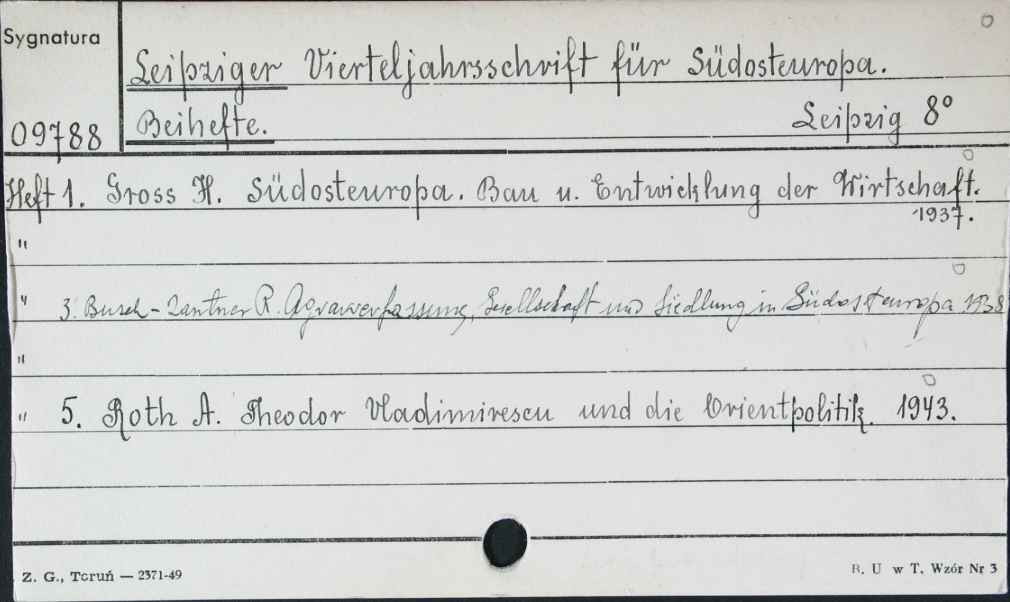 Sygnatura
Leipziger Vierteljahrsschrift für Südosteuropa.
09788
Beihefte. Leipzig 8°
Heft 1. Gross H. Südosteuropa. Bau u. Entwicklung der Wirtschaft.
1937.
"
" 3. Busch-Zantner R. Agrarverfassung, Gesellschaft und Siedlung in Südosteuropa 1938
"
" 5. Roth A. Theodor Vladimirescu und die Orientpolitik. 1943.
Z. G., Toruń — 2371-49
B. U w T. Wzór Nr 3